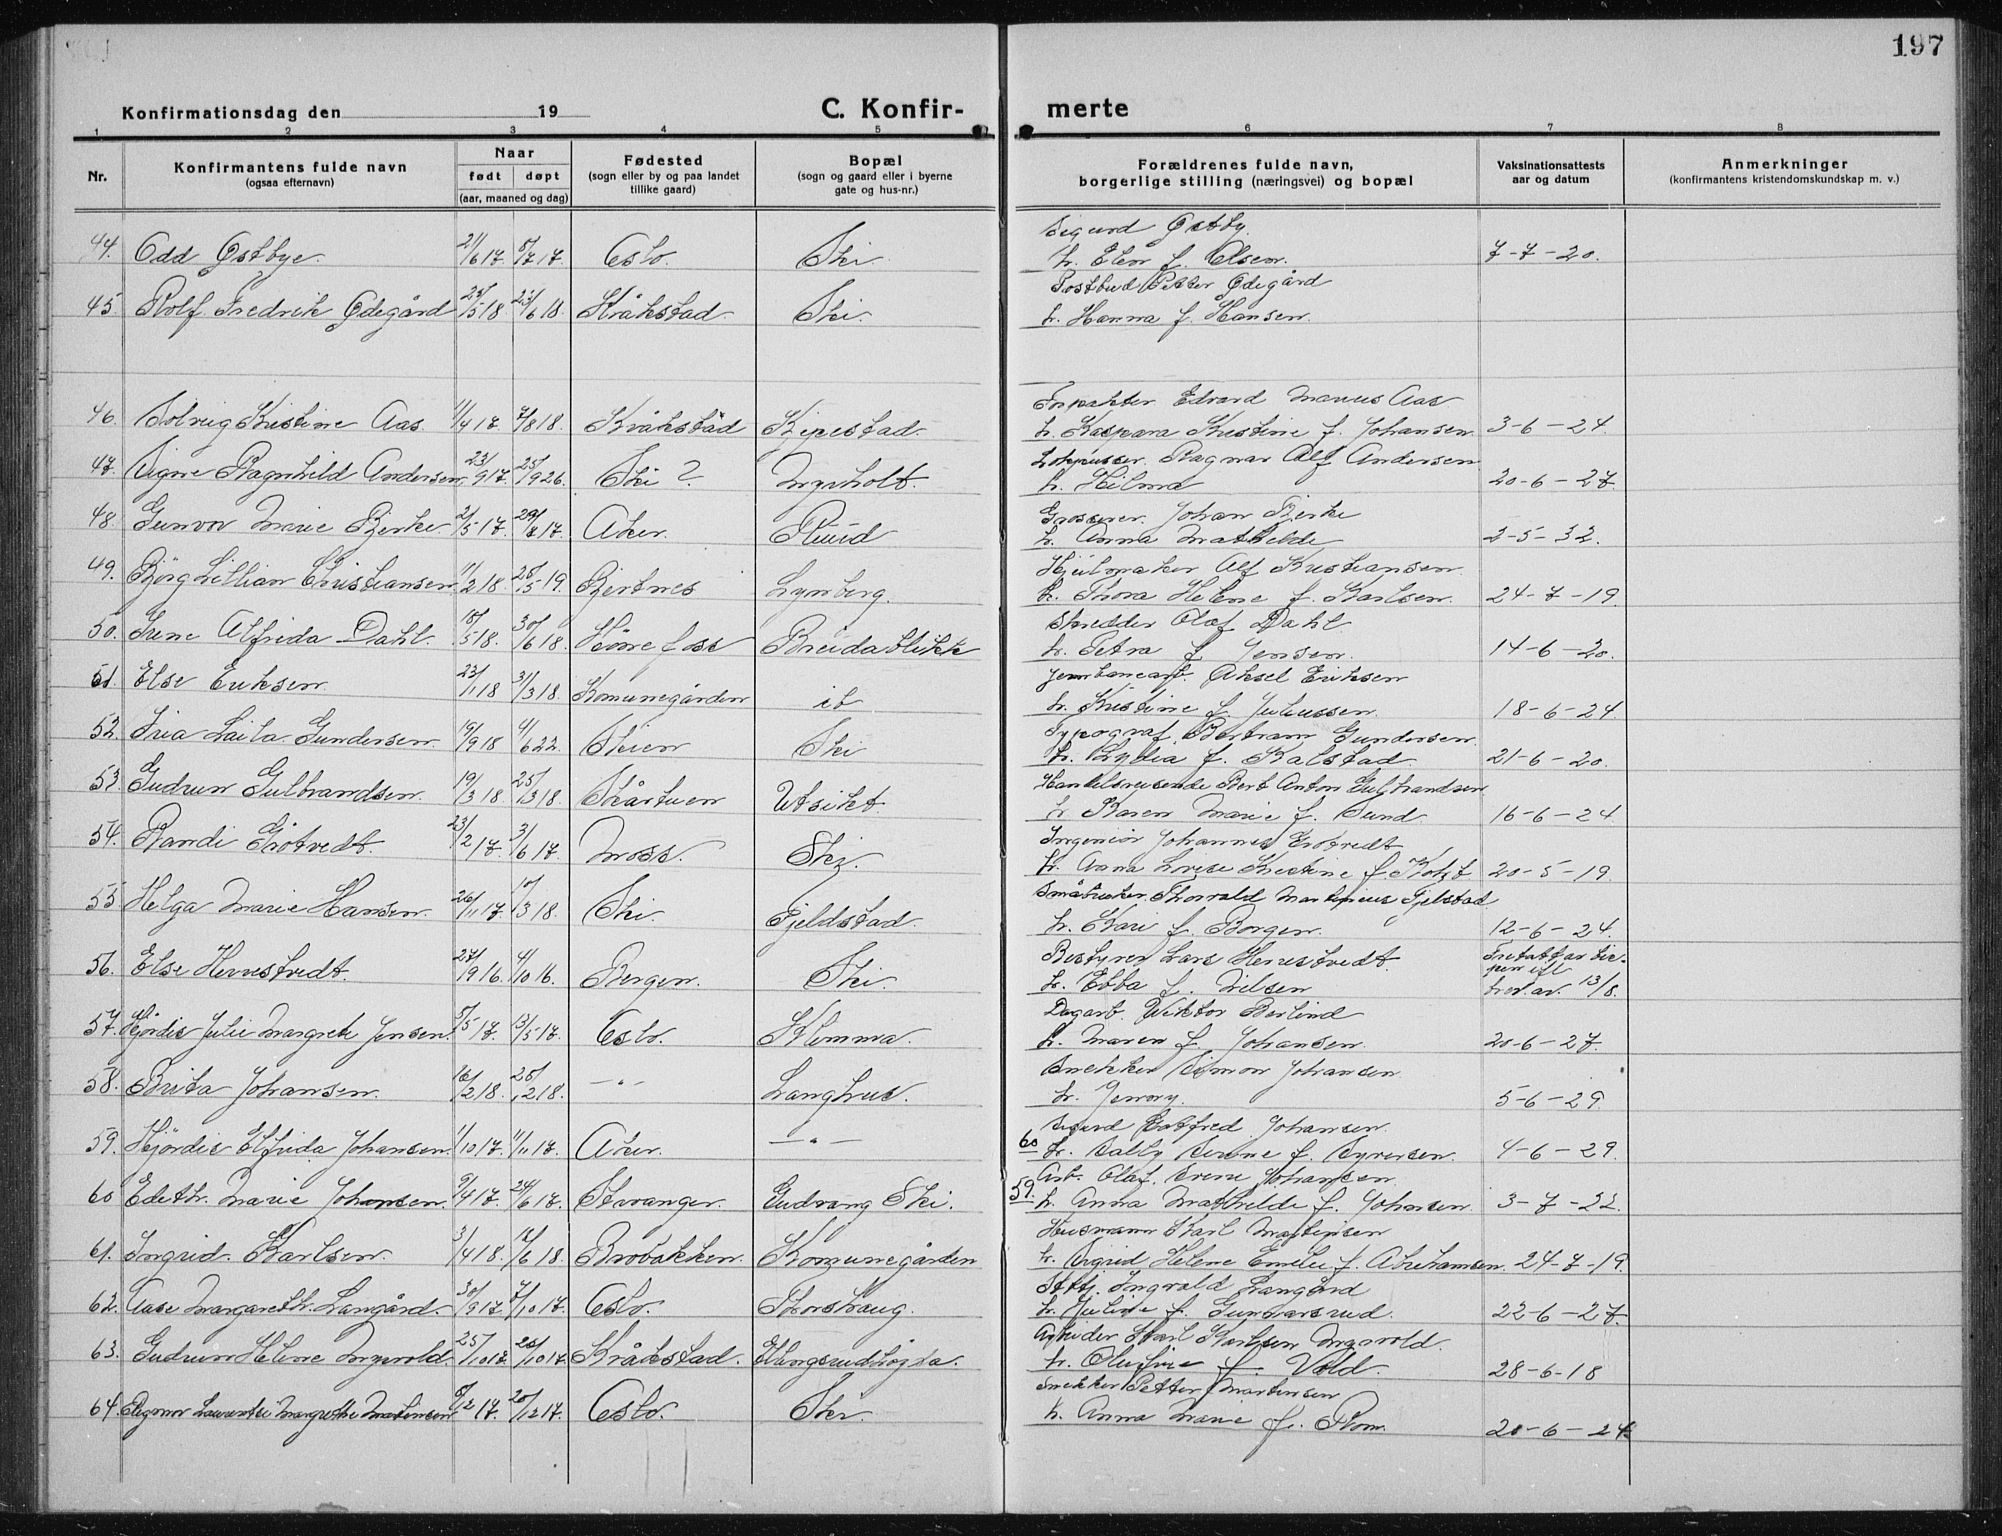 197
Konfirmationsdag den 19
C. Konfir-
merte
1 2 3 4 5 6 7 8
Nr.
Konfirmantens fulde navn
(ogsaa efternavn)
Naar
født døpt
(aar, maaned og dag)
Fødested
(sogn eller by og paa landet
tillike gaard)
Bopæl
(sogn og gaard eller i byerne
gate og hus-nr.)
Forældrenes fulde navn,
borgerlige stilling (næringsvei) og bopæl
Vaksinationsattests
aar og datum
Anmerkninger
(konfirmantens kristendomskundskap m. v.)
Sigurd Østby.
44. Odd Østbye. 21/6 17. 5/7 17. Oslo. Ski. h. Elen f. Olsen. 7-7-20.
Postbud Petter Ødegård
45. Rolf Fredrik Ødegård 23/5 18. 23/6 18. Kråkstad. Ski. h. Hanna f. Hansen.
Edvard Marius Aas
46. Solveig Kristine Aas. 11/4 17. 7/8 18. Kråkstad Kjepestad. h. Kaspara Kristine f. Johansen. 3-6-24.
Ragnar Alf Andersen
47. Signe Ragnhild Andersen 23/9 17. 25/9 26. Ski ? Myrholt. h. Hilma 20-6-27.
Grosserer Johan Bjerke
48. Gunvor Marie Bjerke. 2/5 17. 29/7 17. Aker. Ruud h. Anna Mathilde 2-5-32.
Hjulmaker Alf Kristiansen
49. Bjørg Lillian Christiansen 11/2 18. 25/5 19. Bjertnes Lynberg. h. Thora Helene f. Karlsen. 24-7-19.
Skredder Olaf Dahl.
50. Irene Alfrida Dahl. 18/5 18. 30/6 18. Hønefoss Breidablikk h. Petra f. Jensen. 14-6-20.
Jernbanearb. Aksel Eriksen
51. Else Eriksen. 23/1 18 31/3 18. Komunegården ib h. Kristine f. Juliussen. 18-6-24.
Typograf Bertram Gundersen.
52. Iria Laila Gundersen. 19/9 18 4/6 22. Skien Ski h. Lydia f. Kalstad. 21-6-20.
Handelsreisende Bert Anton Gulbrandsen
53. Gudrun Gulbrandsen. 19/3 18. 25/3 18. Skårtuen Utsikt h. Karen Marie f. Sund. 16-6-24.
Ingeniør Johannes Grøtvedt
54. Randi Grøtvedt. 23/2 17. 3/6 17. Moss. Ski. h. Anna Lovise Kristine f. 20-5-19.
Småbruker Thorvald Martinius Fjelstad
55 Helga Marie Hansen. 26/11 17. 10/3 18. Ski. Fjeldstad. h. Kari f. Borgen. 12-6-24.
Bestyrer Lars Hervestvedt.
56. Else Hervestvedt. 27/9 16. 4/10 16. Bergen. Ski. h. Ebba f. Nilsen 13/8.
Dagarb. Wiktor Berlind
57. Hjørdis Julie Margrete Jensen. 5/5 17. 13/5 17. Oslo. Klemma. h. Maren f. Johansen. 20-6-27.
Snekker Simon Johansen
58. Brita Johansen. 16/2 18. 25/2 18. —"— Langhus. h. Jenny. 5-6-29.
Johansen.
59. Hjørdis Elfrida Johansen. 11/10 17. 11/11 17. Aker. —"— 60 h. Sally f. Syversen. 4-6-29.
Arb. Olaf Johansen.
60 Edeth. Marie Johansen. 9/4 17. 24/6 17. Stavanger. Gudvang Ski. 59. h. Anna Mathilde f. Johansen. 3-7-22.
Husmann Karl
61. Ingrid Karlsen. 3/4 18. 16/6 18. Brobakken. Komunegården h. Sigrid Helene Emelie f. Abrahamsen. 24-7-19.
Ingvald Langård
62. Aase Margareth. Langård. 30/9 17. 7/10 17. Oslo. Thorshaug. h. Juline f. Gunnarsrud. 22-6-27.
Arbeider Karl Karlsen Myrvold.
63. Gudrun Helene Myrvold. 25/10 17. 28/10 17. Kråkstad. h. f. Vold. 28-6-18
Snekker Petter Martinsen
64. Margrethe Martinsen 5/12 17. 20/12 17. Oslo. Ski. h. Anna Marie f. Rom. 20-6-24.